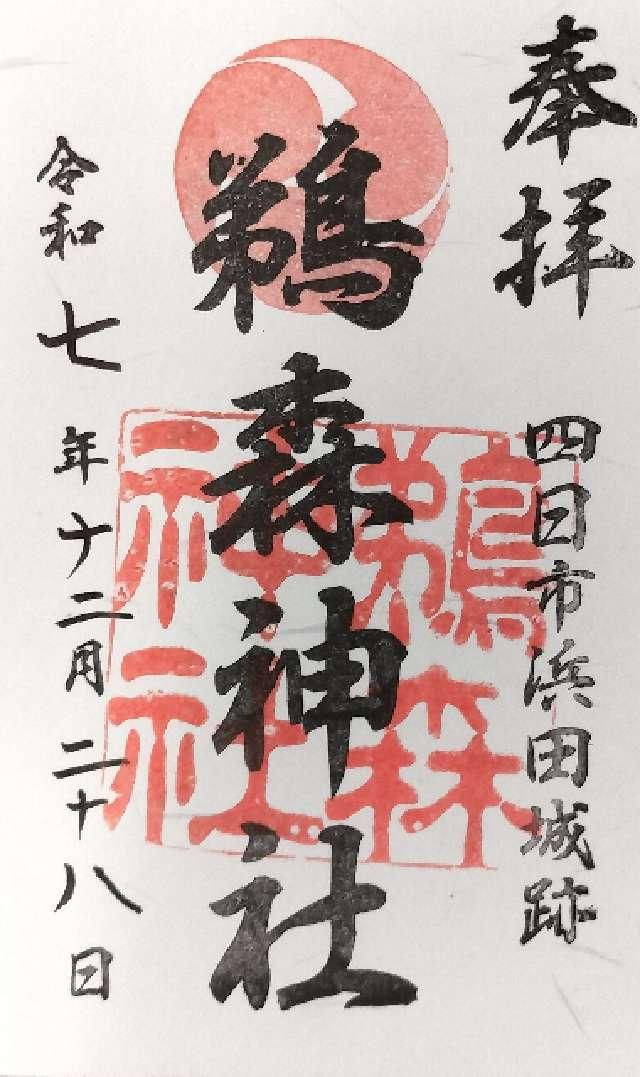 奉拝
四日市浜田城跡
鵜森神社
鵜森
神社
令和七年十二月二十八日